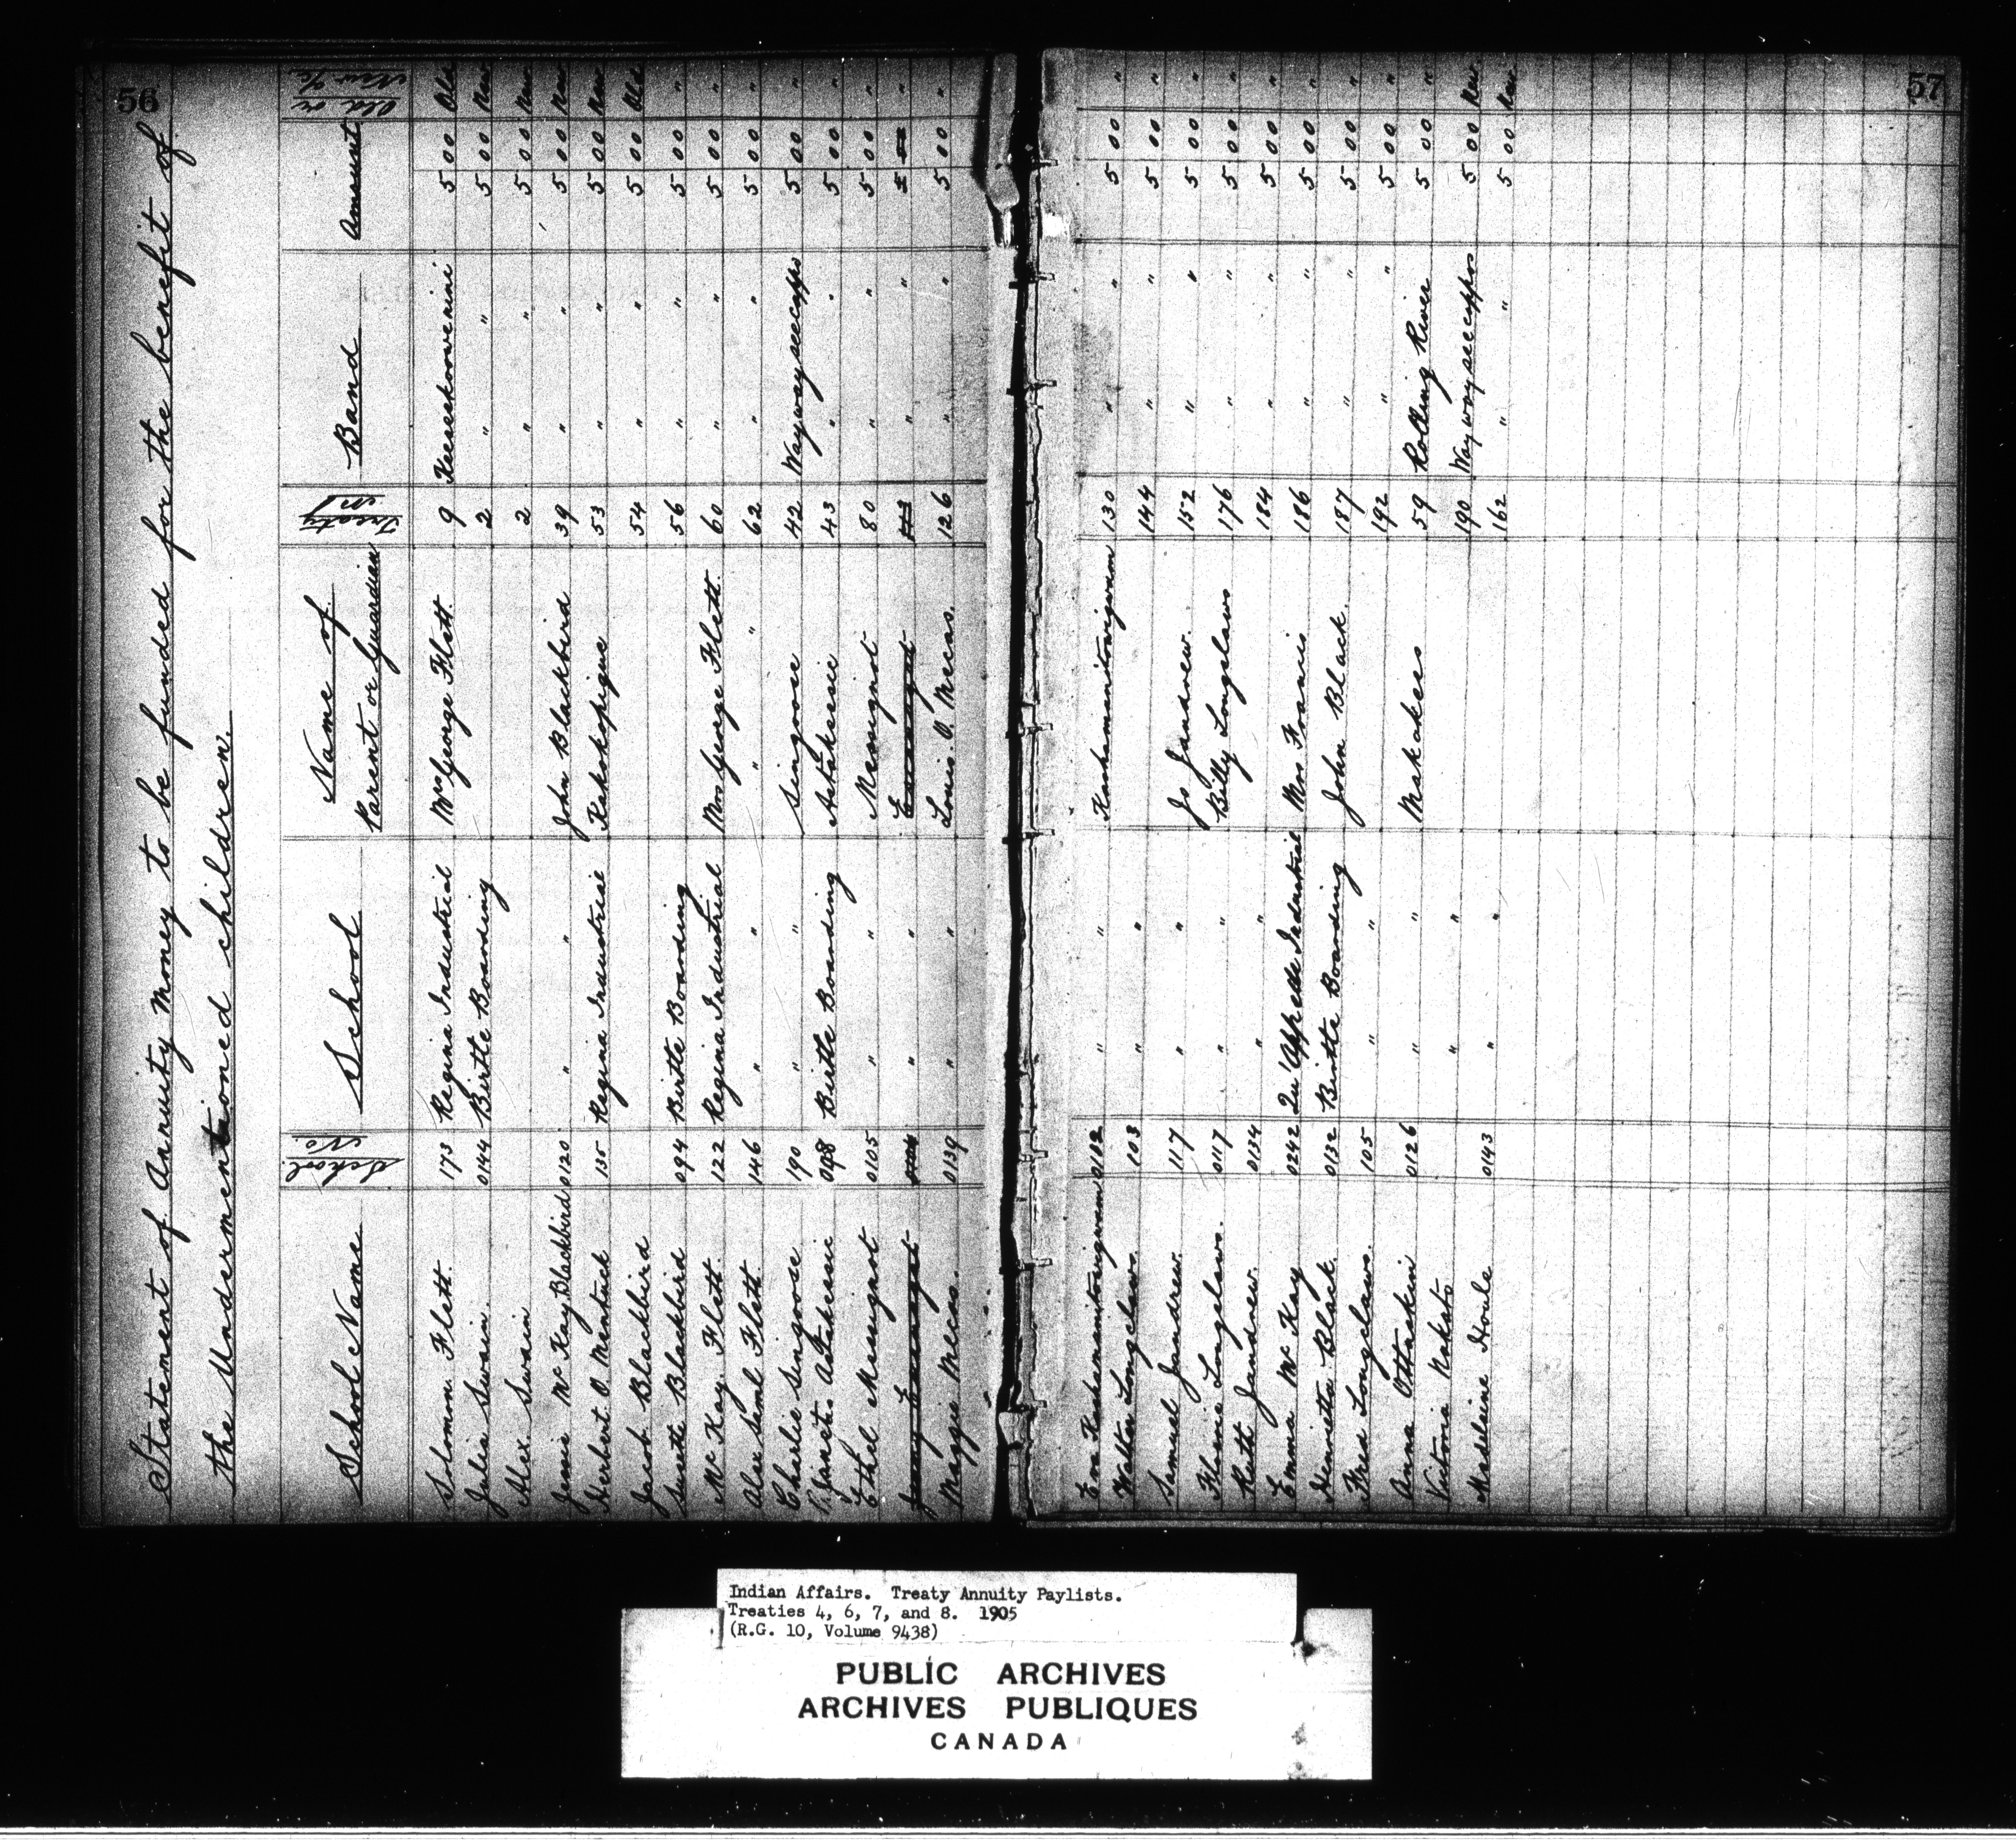 56
Statement of Annuity Money to be funded for the benefit of
the Undermentioned children.
School Name School No. School Name of Parent or Guardian Treaty No Band Amount Old or New a/c
Solomon Flett. 173 Regina Industrial Mrs George Flett. 9 Keeseekoowenini 5 00 Old
Julia Swain. 0144 Birtle Boarding 2 " " 5 00 New
Alex. Swain 2 " " 5 00 New
Jessie McKay Blackbird 0120 " " John Blackbird 39 " " 5 00 New
Herbert O. Mentuck 135 Regina Industrial Kakakopigue 53 " " 5 00 New
Jacob Blackbird 54 " " 5 00 Old
Susette Blackbird 094 Birtle Boarding 56 " " 5 00 "
McKay. Flett. 122 Regina Industrial Mrs George Flett. 60 " " 5 00 "
Alex Saml Flett. 146 " " " " 62 " " 5 00 "
Charlie Singoose 190 " " Singoose 42 Waywayseecappo 5 00 "
Janet. Astakeesic 098 Birtle Boarding Astakeesic 43 " " 5 00 "
Ethel Mesugnot 0105 " " Mesugnot 80 " " 5 00 "
" " " " 5 00 "
Maggie Mecas. 0139 " " Louis. O. Mecas. 126 " " 5 00 "
57
Eva Kashamanitowigwam 0102 " " Kashimanitowigwam 130 " " 5 00 "
Walter Longclaws. 103 " " 144 " " 5 00 "
Samuel Jandrew. 117 " " Jo Jandrew. 152 " " 5 00 "
Flavie Longclaws. 0117 " " Billy Longclaws 176 " " 5 00 "
Ruth Jandrew. 0134 " " 184 " " 5 00 "
Emma McKay 0242 Qu'Appelle Industrial Mrs Francis 186 " " 5 00 "
Henrietta Black. 0132 Birtle Boarding John Black. 187 " " 5 00 "
Fred Longclaws. 105 " " 192 " " 5 00 "
Anna Ottaskin 0126 " " Makakes 59 Rolling River 5 00 "
Victoria Nakato " " 190 Waywayseecappos 5 00 New
Madelaine Houle 0143 " " 162 " " 5 00 New
Indian Affairs. Treaty Annuity Paylists.
Treaties 4, 6, 7, and 8. 1905
(R.G. 10, Volume 9438)
PUBLIC ARCHIVES
ARCHIVES PUBLIQUES
CANADA